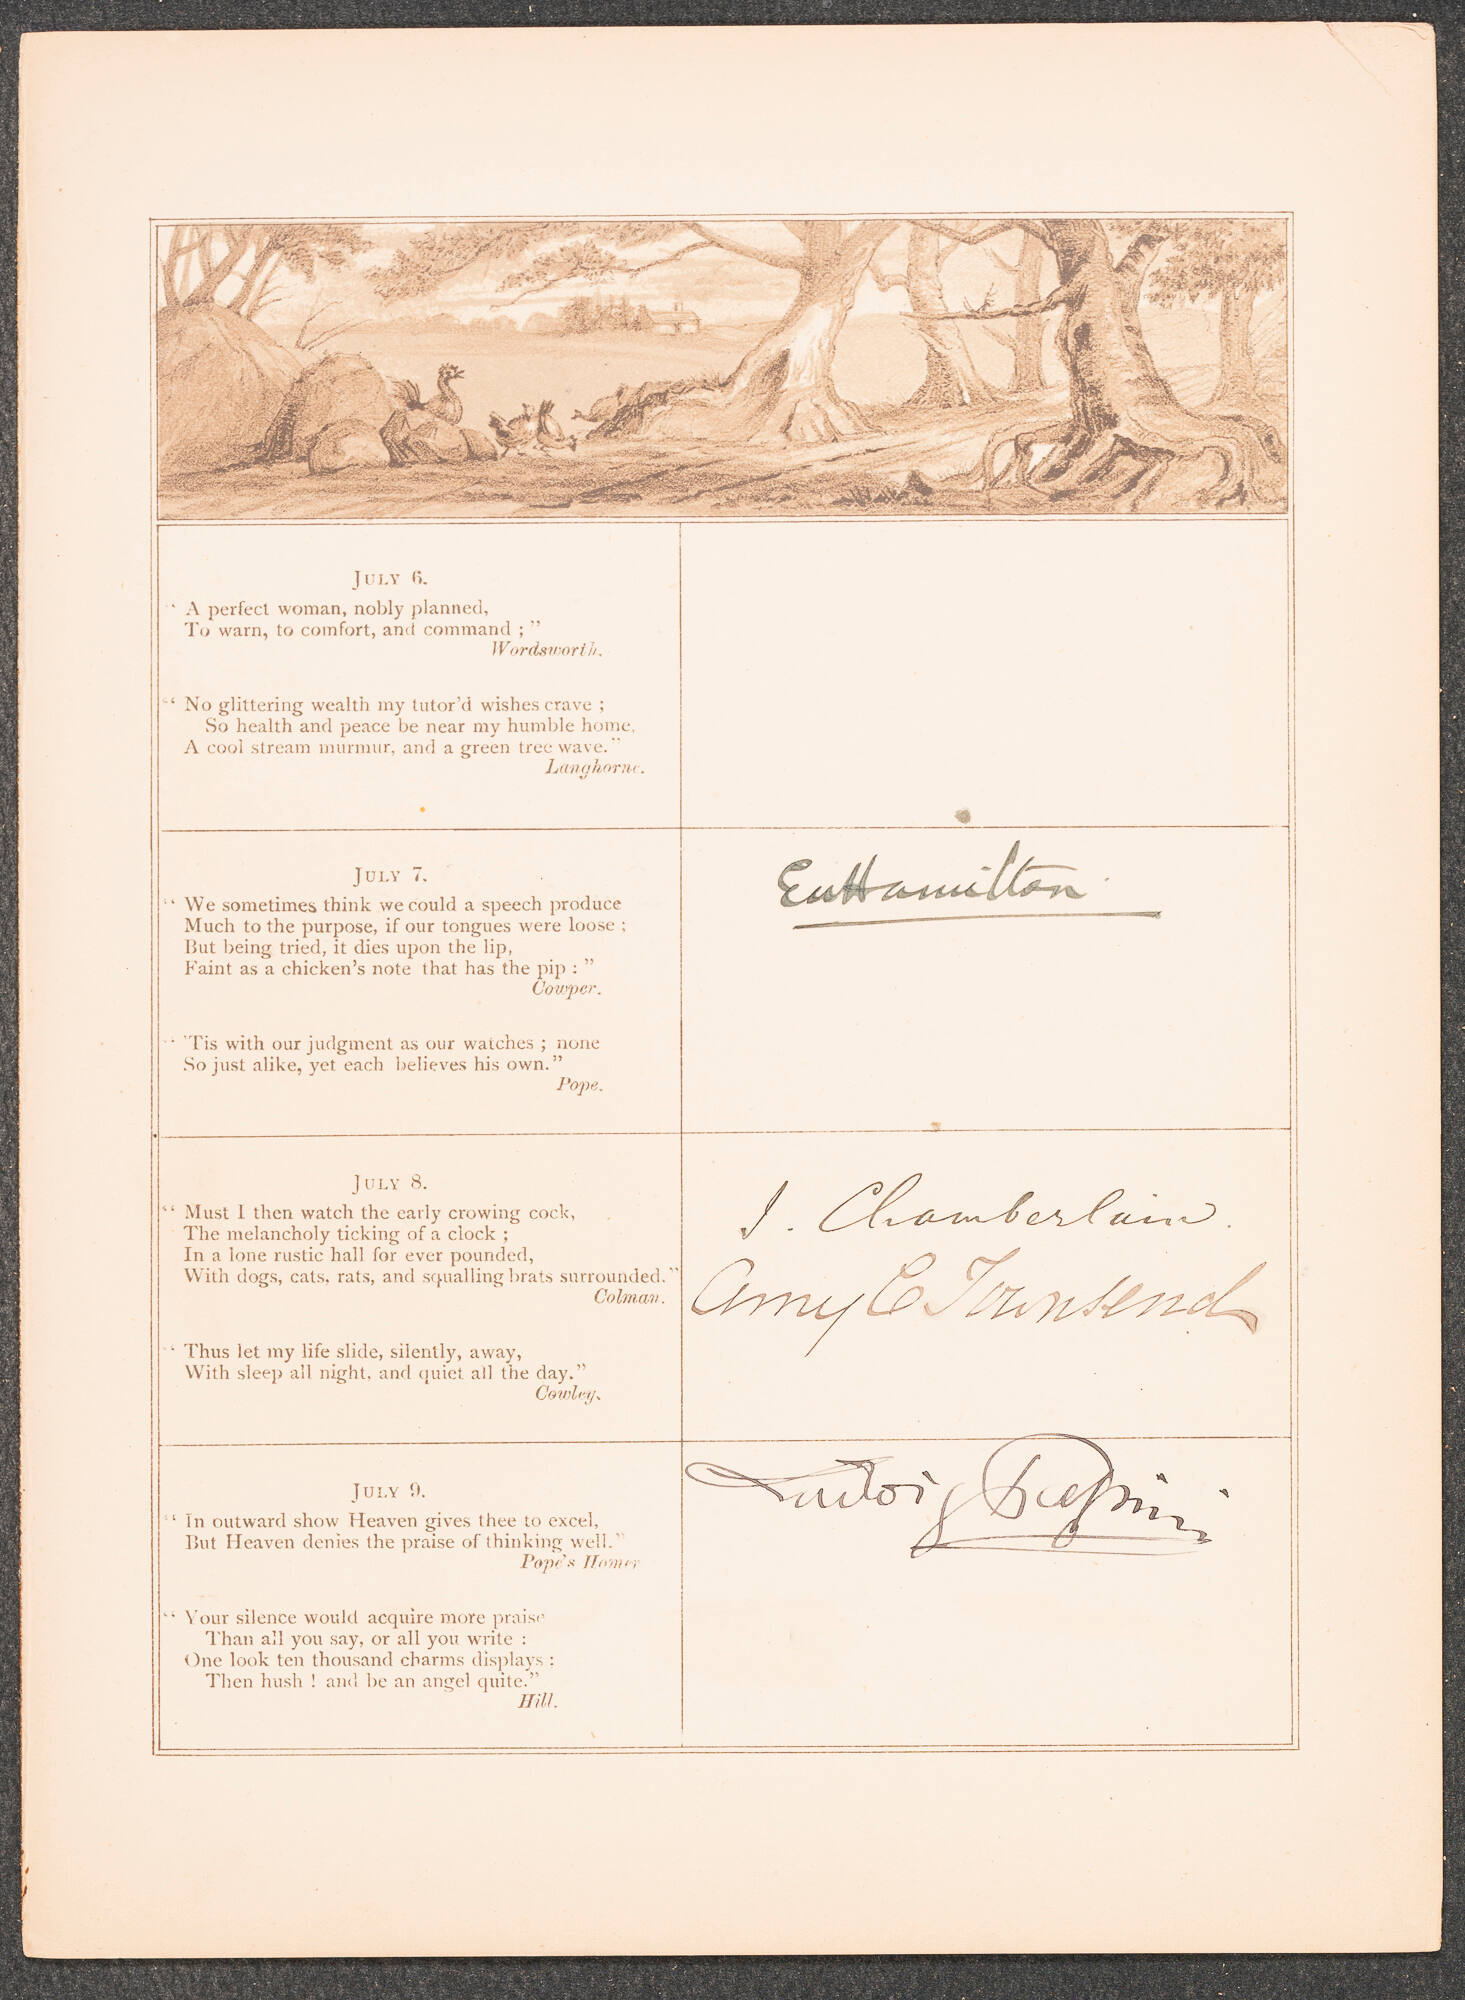 JULY 6.
“ A perfect woman, nobly planned,
To warn, to comfort, and command ; ”
Wordsworth.
“ No glittering wealth my tutor’d wishes crave ;
So health and peace be near my humble home,
A cool stream murmur, and a green tree wave.”
Langhorne.
JULY 7.
“ We sometimes think we could a speech produce
Much to the purpose, if our tongues were loose ;
But being tried, it dies upon the lip,
Faint as a chicken’s note that has the pip : ”
Cowper.
“ ’Tis with our judgment as our watches ; none
So just alike, yet each believes his own.”
Pope.
Hamilton
JULY 8.
“ Must I then watch the early crowing cock,
The melancholy ticking of a clock ;
In a lone rustic hall for ever pounded,
With dogs, cats, rats, and squalling brats surrounded.”
Colman.
“ Thus let my life slide, silently, away,
With sleep all night, and quiet all the day.”
Cowley.
J. Chamberlain.
Amy C Townsend
JULY 9.
“ In outward show Heaven gives thee to excel,
But Heaven denies the praise of thinking well.”
Pope’s Homer
“ Your silence would acquire more praise
Than all you say, or all you write :
One look ten thousand charms displays ;
Then hush ! and be an angel quite.”
Hill.
Ludwig